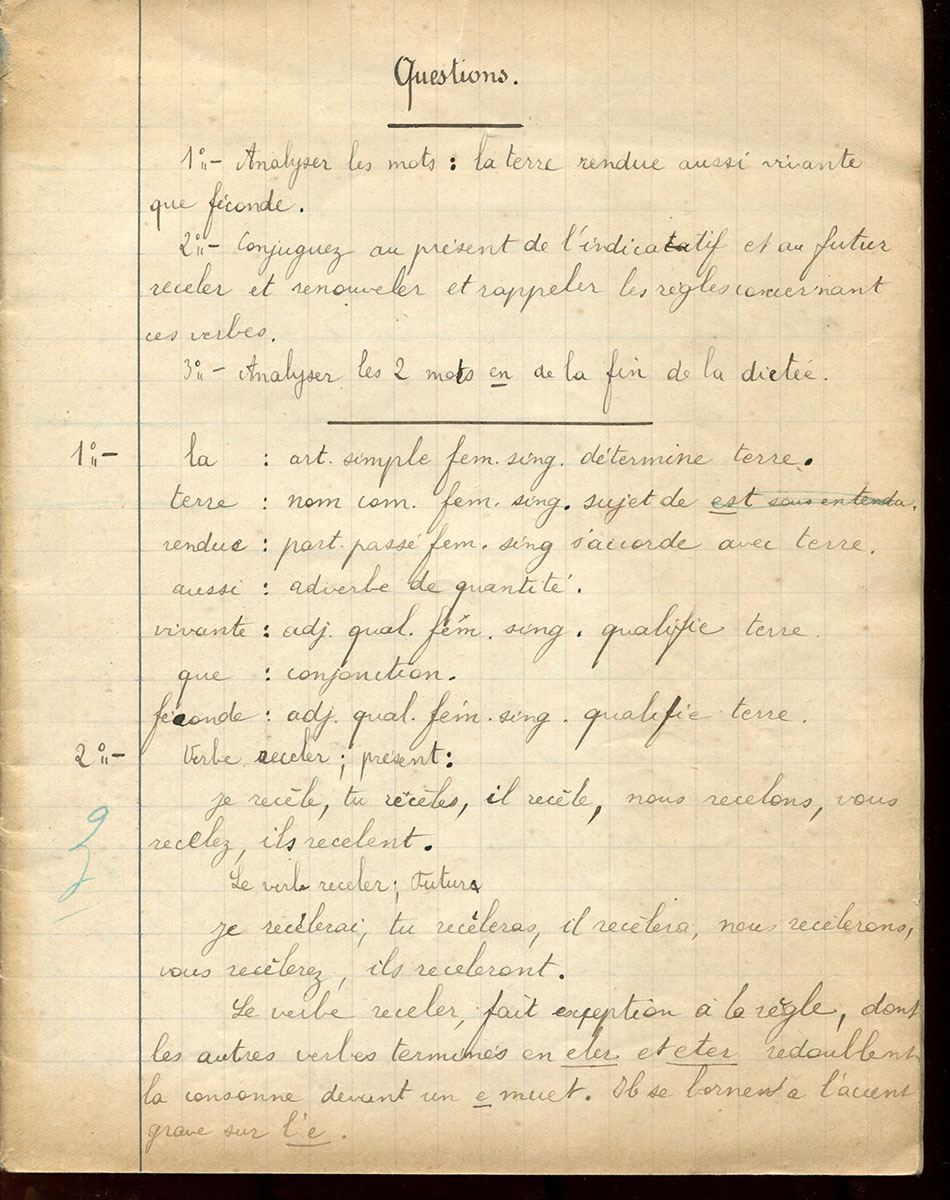 Questions.
1° - Analyser les mots : la terre rendue aussi vivante
que féconde.
2° - Conjuguez au présent de l'indicatatif et au futur
receler et renouveler et rappeler les règles concernant
ces verbes.
3° - Analyser les 2 mots en de la fin de la dictée.
1° - la : art. simple fem. sing. détermine terre.
terre : nom com. fem. sing. sujet de est sous entendu.
rendue : part. passé fem. sing s'accorde avec terre.
aussi : adverbe de quantité.
vivante : adj. qual. fém. sing. qualifie terre.
que : conjonction.
féconde : adj. qual. fém. sing. qualifie terre.
2° - Verbe receler ; présent :
je recèle, tu recèles, il recèle, nous recelons, vous
recelez, ils recelent.
Le verbe receler ; Futur
je recèlerai, tu recèleras, il recèlera, nous recèlerons,
vous recèlerez, ils receleront.
Le verbe receler, fait exception à la règle, dont
les autres verbes terminés en eler et eter redoublent
la consonne devant un e muet. Ils se bornent a l'accent
grave sur l'e.